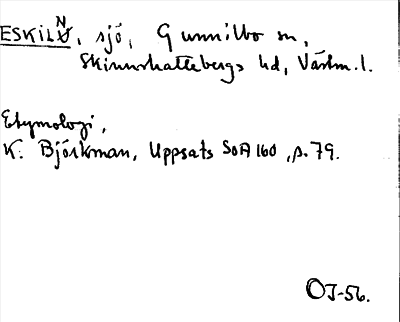 ESKILN, sjö, Gunnilbo sn,
Skinnskattebergs hd, Västm. l.
Etymologi,
K. Björkman, Uppsats SOA 160, s. 79.
OJ-56.